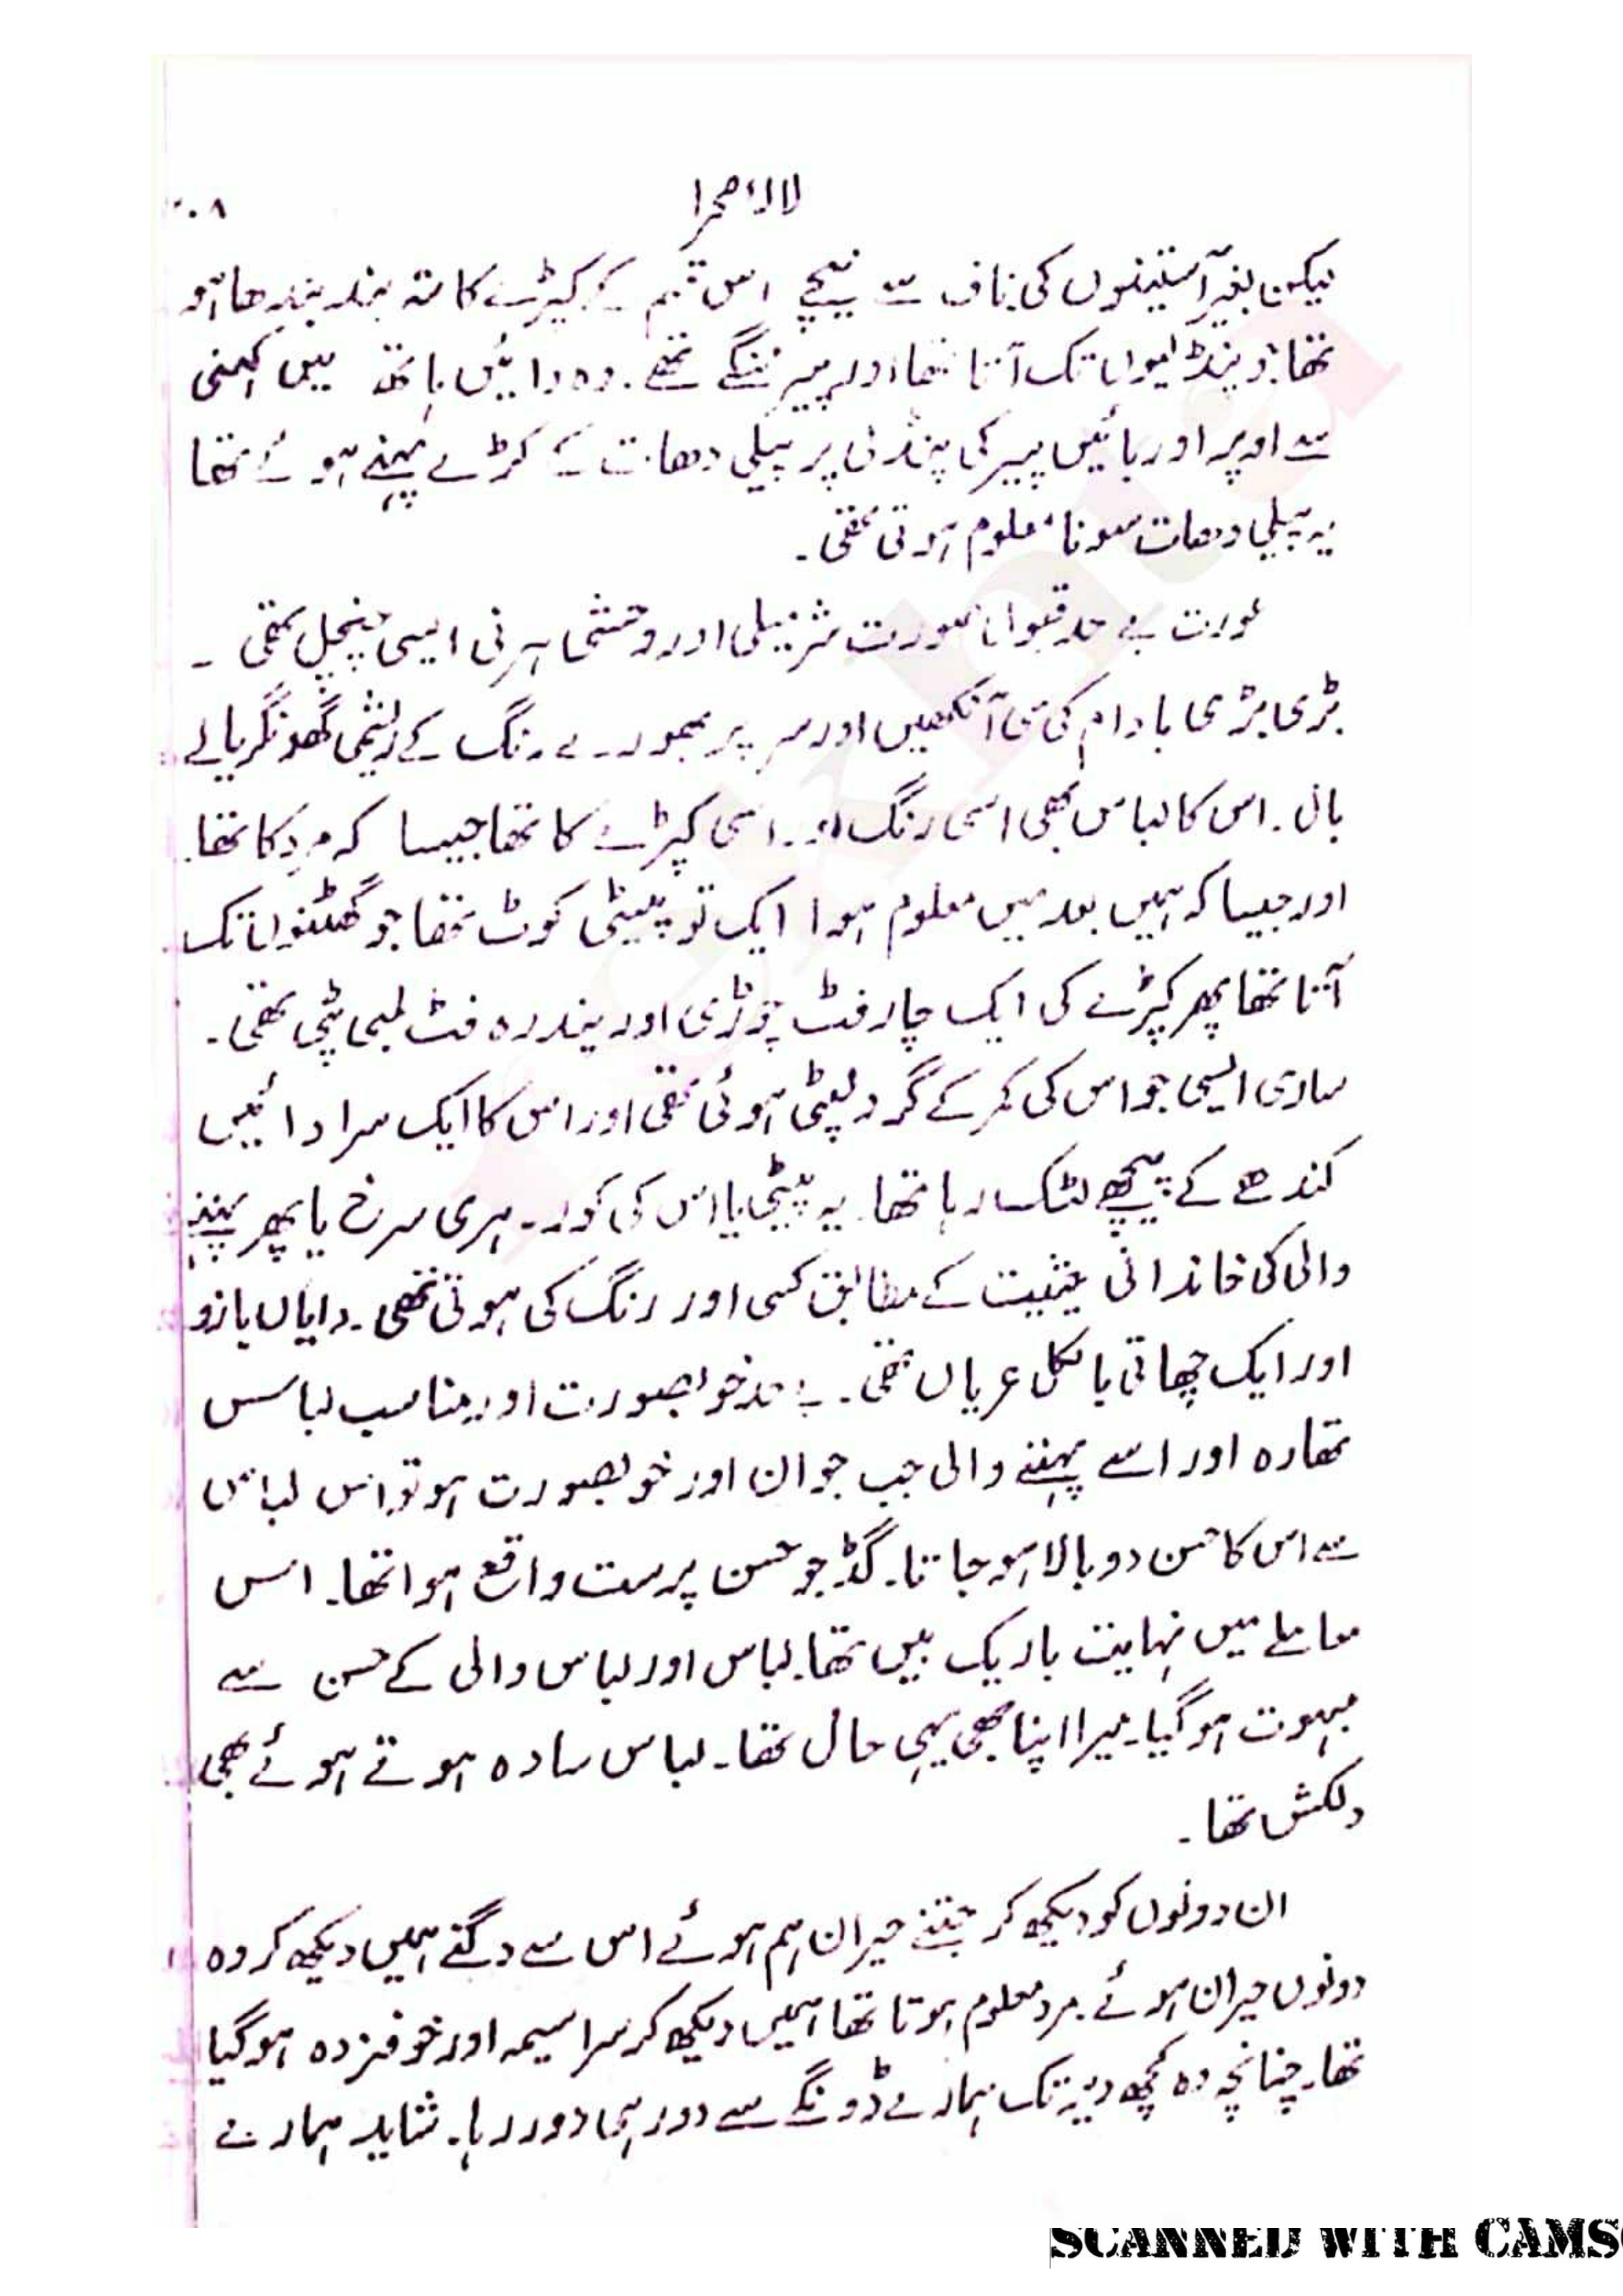 لالۂ صحرا
لیکن بغیر آستینوں کی ناف سے نیچے اس قسم کے کپڑے کا تہ بند بندھا ہو
تھا جو پنڈلیوں تک آتا تھا اور پیر ننگے تھے۔ وہ دائیں ہاتھ میں کہنی
سے اوپر اور بائیں پیر کی پنڈلی پر پیلی دھات کے کڑے پہنے ہوئے تھا
یہ پیلی دھات سونا معلوم ہوتی تھی۔
عورت بے حد قبول صورت شرمیلی اور وحشی ہرنی ایسی چنچل تھی۔
بڑی بڑی بادام کی سی آنکھیں اور سر پر بھورے رنگ کے ریشمی گھونگریالے
بال۔ اس کا لباس بھی اسی رنگ اور اسی کپڑے کا تھا جیسا کہ مرد کا تھا۔
اور جیسا کہ ہمیں بعد میں معلوم ہوا ایک تو پیٹی کوٹ تھا جو گھٹنوں تک
آتا تھا پھر کپڑے کی ایک چار فٹ چوڑی اور پندرہ فٹ لمبی پٹی تھی۔
ساری ایسی جو اس کی کمر کے گرد لپٹی ہوئی تھی اور اس کا ایک سرا دائیں
کندھے کے پیچھے لٹک رہا تھا۔ یہ پیٹی یا اس کی کور۔ ہری سرخ یا پھر پہننے
والی کی خاندانی حیثیت کے مطابق کسی اور رنگ کی ہوتی تھی۔ دایاں بازو
اور ایک چھاتی بالکل عریاں تھی۔ بے حد خوبصورت اور مناسب لباس
تھا وہ اور اسے پہننے والی جب جوان اور خوبصورت ہو تو اس لباس
سے اس کا حسن دوبالا ہو جاتا۔ گڈ جو حسن پرست واقع ہوا تھا۔ اس
معاملے میں نہایت باریک بیں تھا۔ لباس اور لباس والی کے حسن سے
مبہوت ہو گیا۔ میرا اپنا بھی یہی حال تھا۔ لباس سادہ ہوتے ہوئے بھی
دلکش تھا۔
ان دونوں کو دیکھ کر جتنے حیران ہم ہوئے اس سے دگنے ہمیں دیکھ کر وہ
دونوں حیران ہوئے۔ مرد معلوم ہوتا تھا ہمیں دیکھ کر سراسیمہ اور خوفزدہ ہو گیا
تھا۔ چنانچہ وہ کچھ دیر تک ہمارے ڈونگے سے دور ہی دور رہا۔ شاید ہمارے
SCANNED WITH CAMS